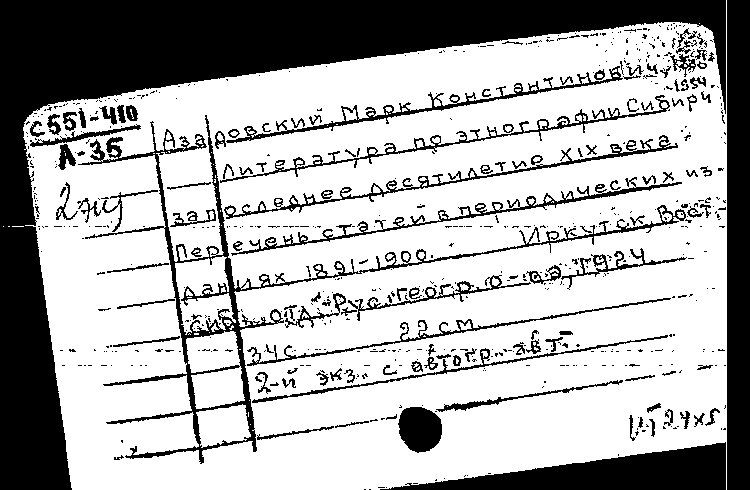 С551-410
А-35
2 эку
Азадовский, Марк Константинович, 1888
-1954.
Литература по этнографии Сибири
за последнее десятилетие XIX века.
Перечень статей в периодических из-
даниях 1891-1900. Иркутск, Вост.
сиб. отд. Рус. геогр. о-ва, 1924.
34 с. 22 см.
2-й экз. с автогр. авт.